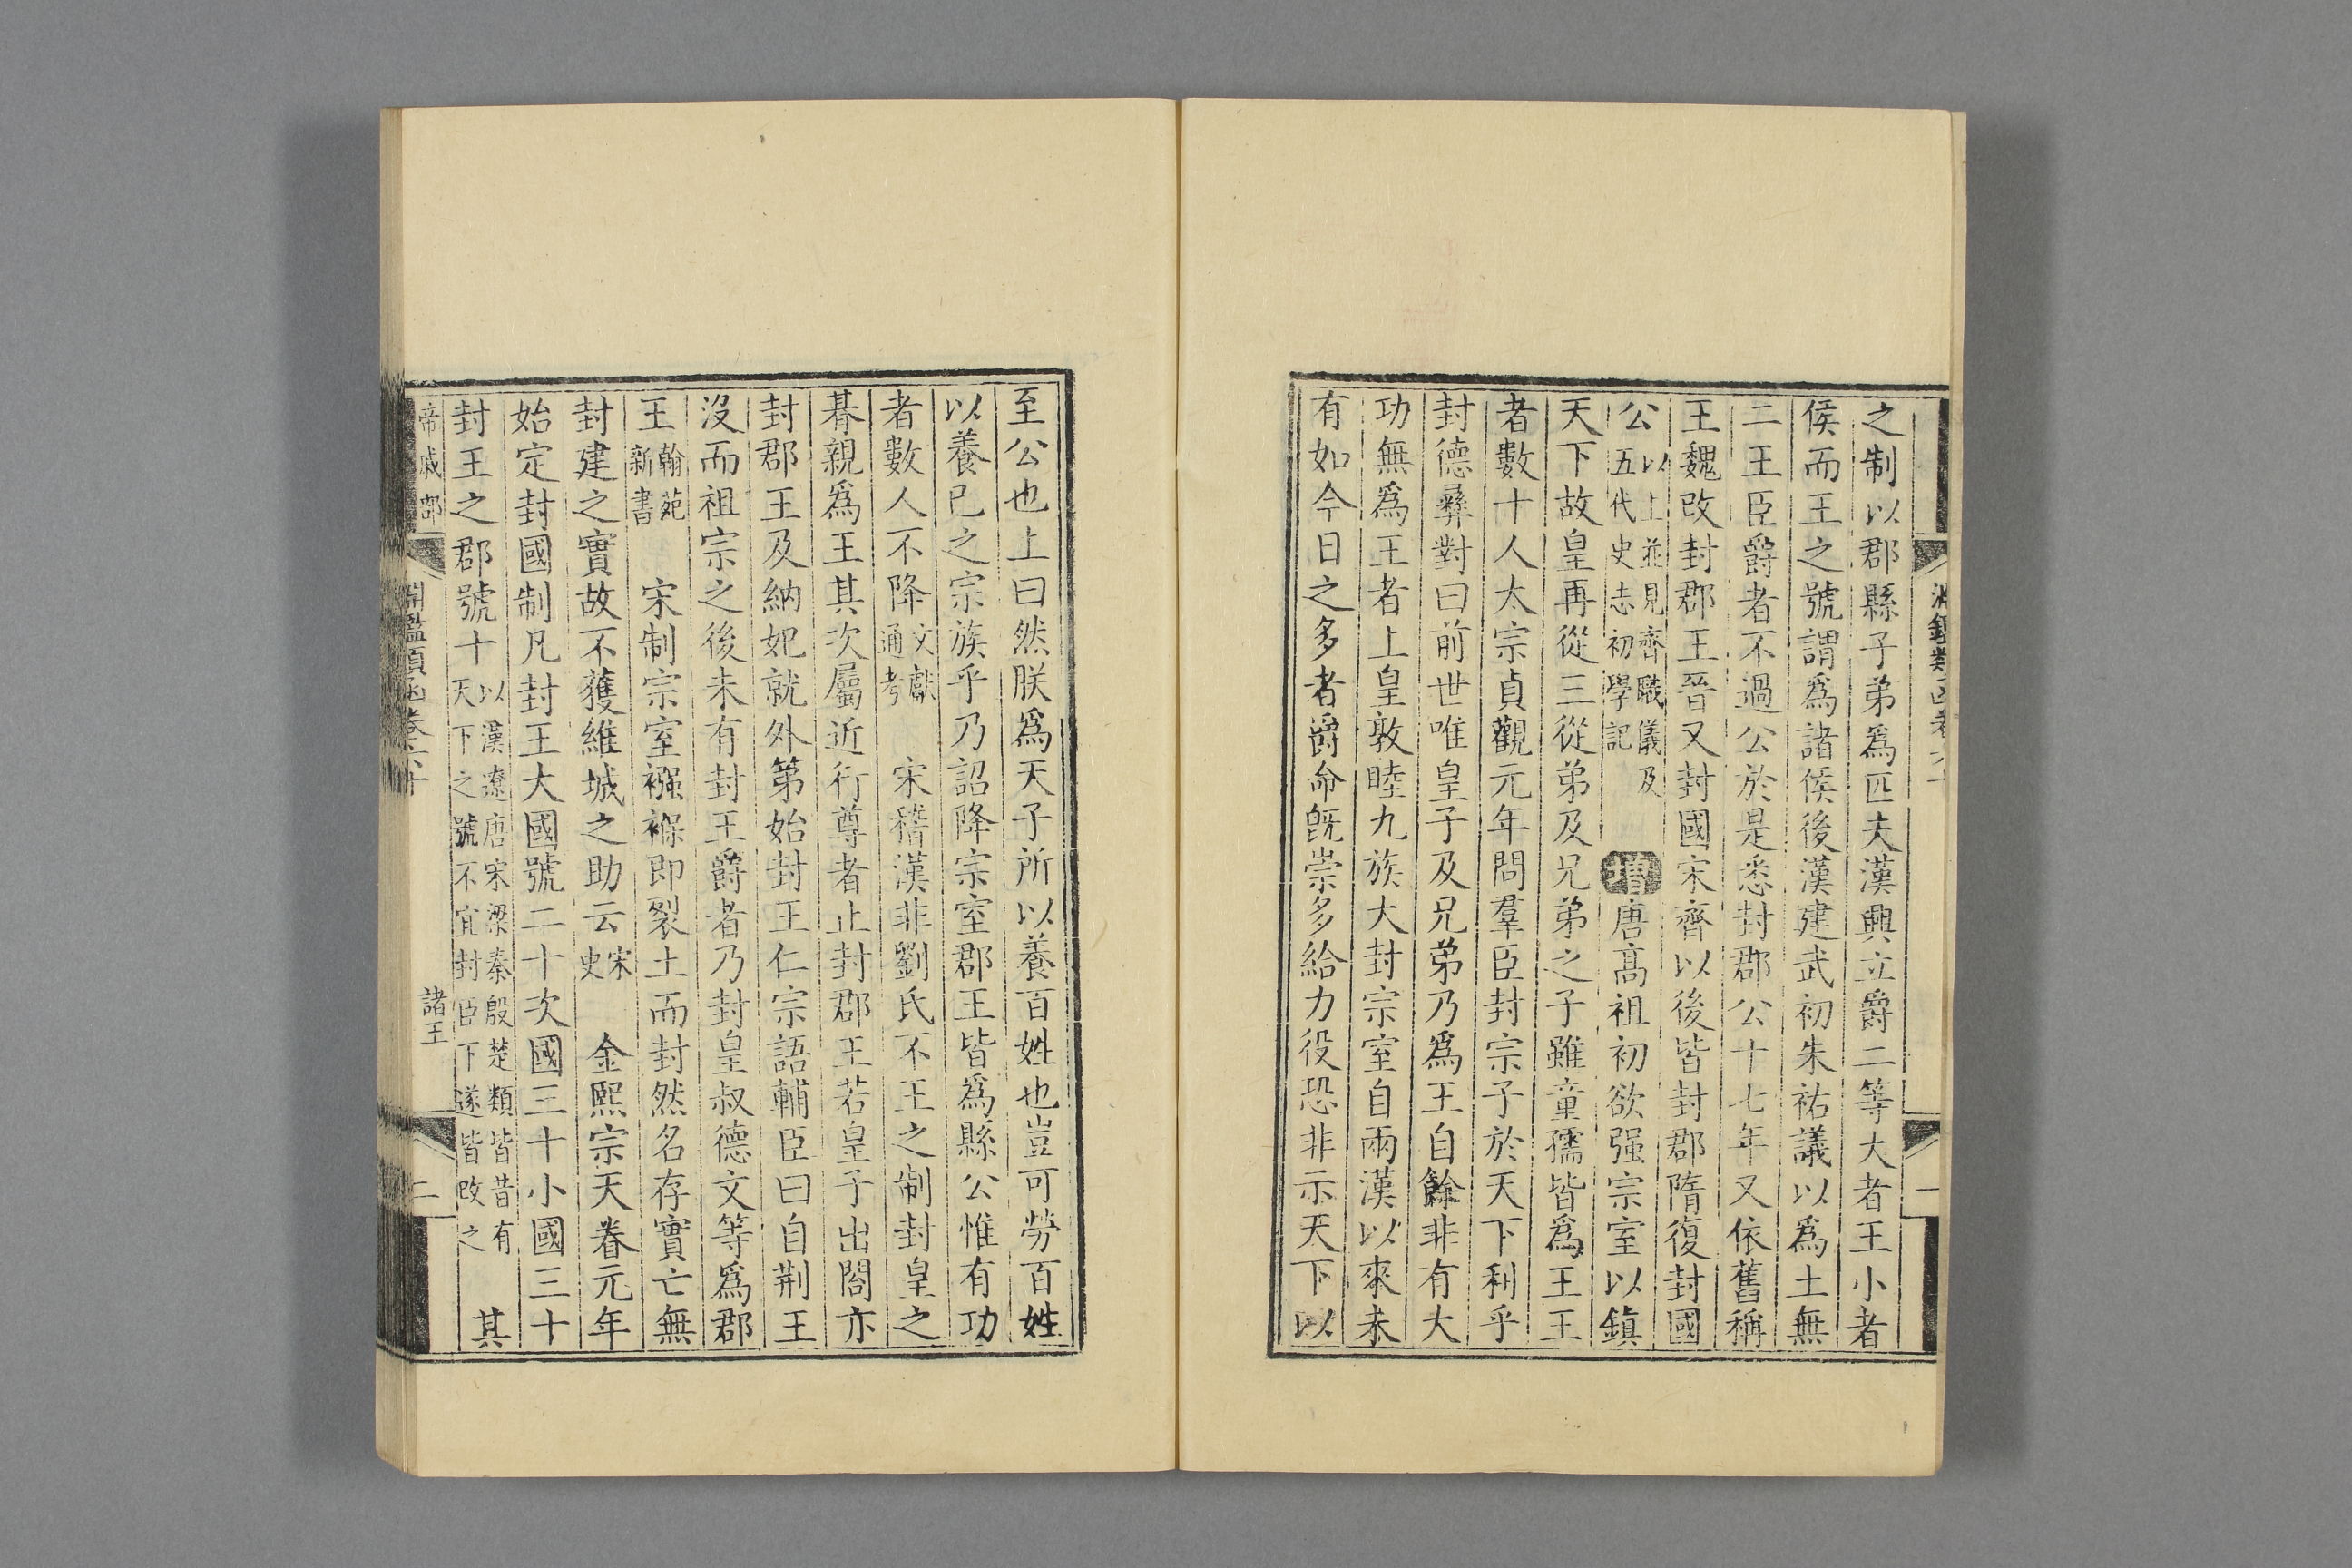 之制以郡縣子弟爲匹夫漢興立爵二等大者王小者
侯而王之號謂爲諸侯後漢建武初朱祐議以爲土無
二王臣爵者不過公於是悉封郡公十七年又依舊稱
王魏改封郡王晉又封國宋齊以後皆封郡隋復封國
公以上並見齊職儀及五代史志初學記 增唐高祖初欲强宗室以鎮
天下故皇再從三從弟及兄弟之子雖童孺皆爲王王
者數十人太宗貞觀元年問羣臣封宗子於天下利乎
封德彝對曰前世唯皇子及兄弟乃爲王自餘非有大
功無爲王者上皇敦睦九族大封宗室自兩漢以來未
有如今日之多者爵命旣崇多給力役恐非示天下以
至公也上曰然朕爲天子所以養百姓也豈可勞百姓
以養己之宗族乎乃詔降宗室郡王皆爲縣公惟有功
者數人不降文獻通考 宋稽漢非劉氏不王之制封皇之
朞親爲王其次屬近行尊者止封郡王若皇子出閤亦
封郡王及納妃就外第始封王仁宗語輔臣曰自荆王
沒而祖宗之後未有封王爵者乃封皇叔德文等爲郡
王翰苑新書 宋制宗室襁褓即裂土而封然名存實亡無
封建之實故不獲維城之助云宋史 金熙宗天眷元年
始定封國制凡封王大國號二十次國三十小國三十
封王之郡號十以漢遼唐宋梁秦殷楚類皆昔有天下之號不宜封臣下遂皆改之 其
帝戚部 淵鑑類函卷六十 諸王 二